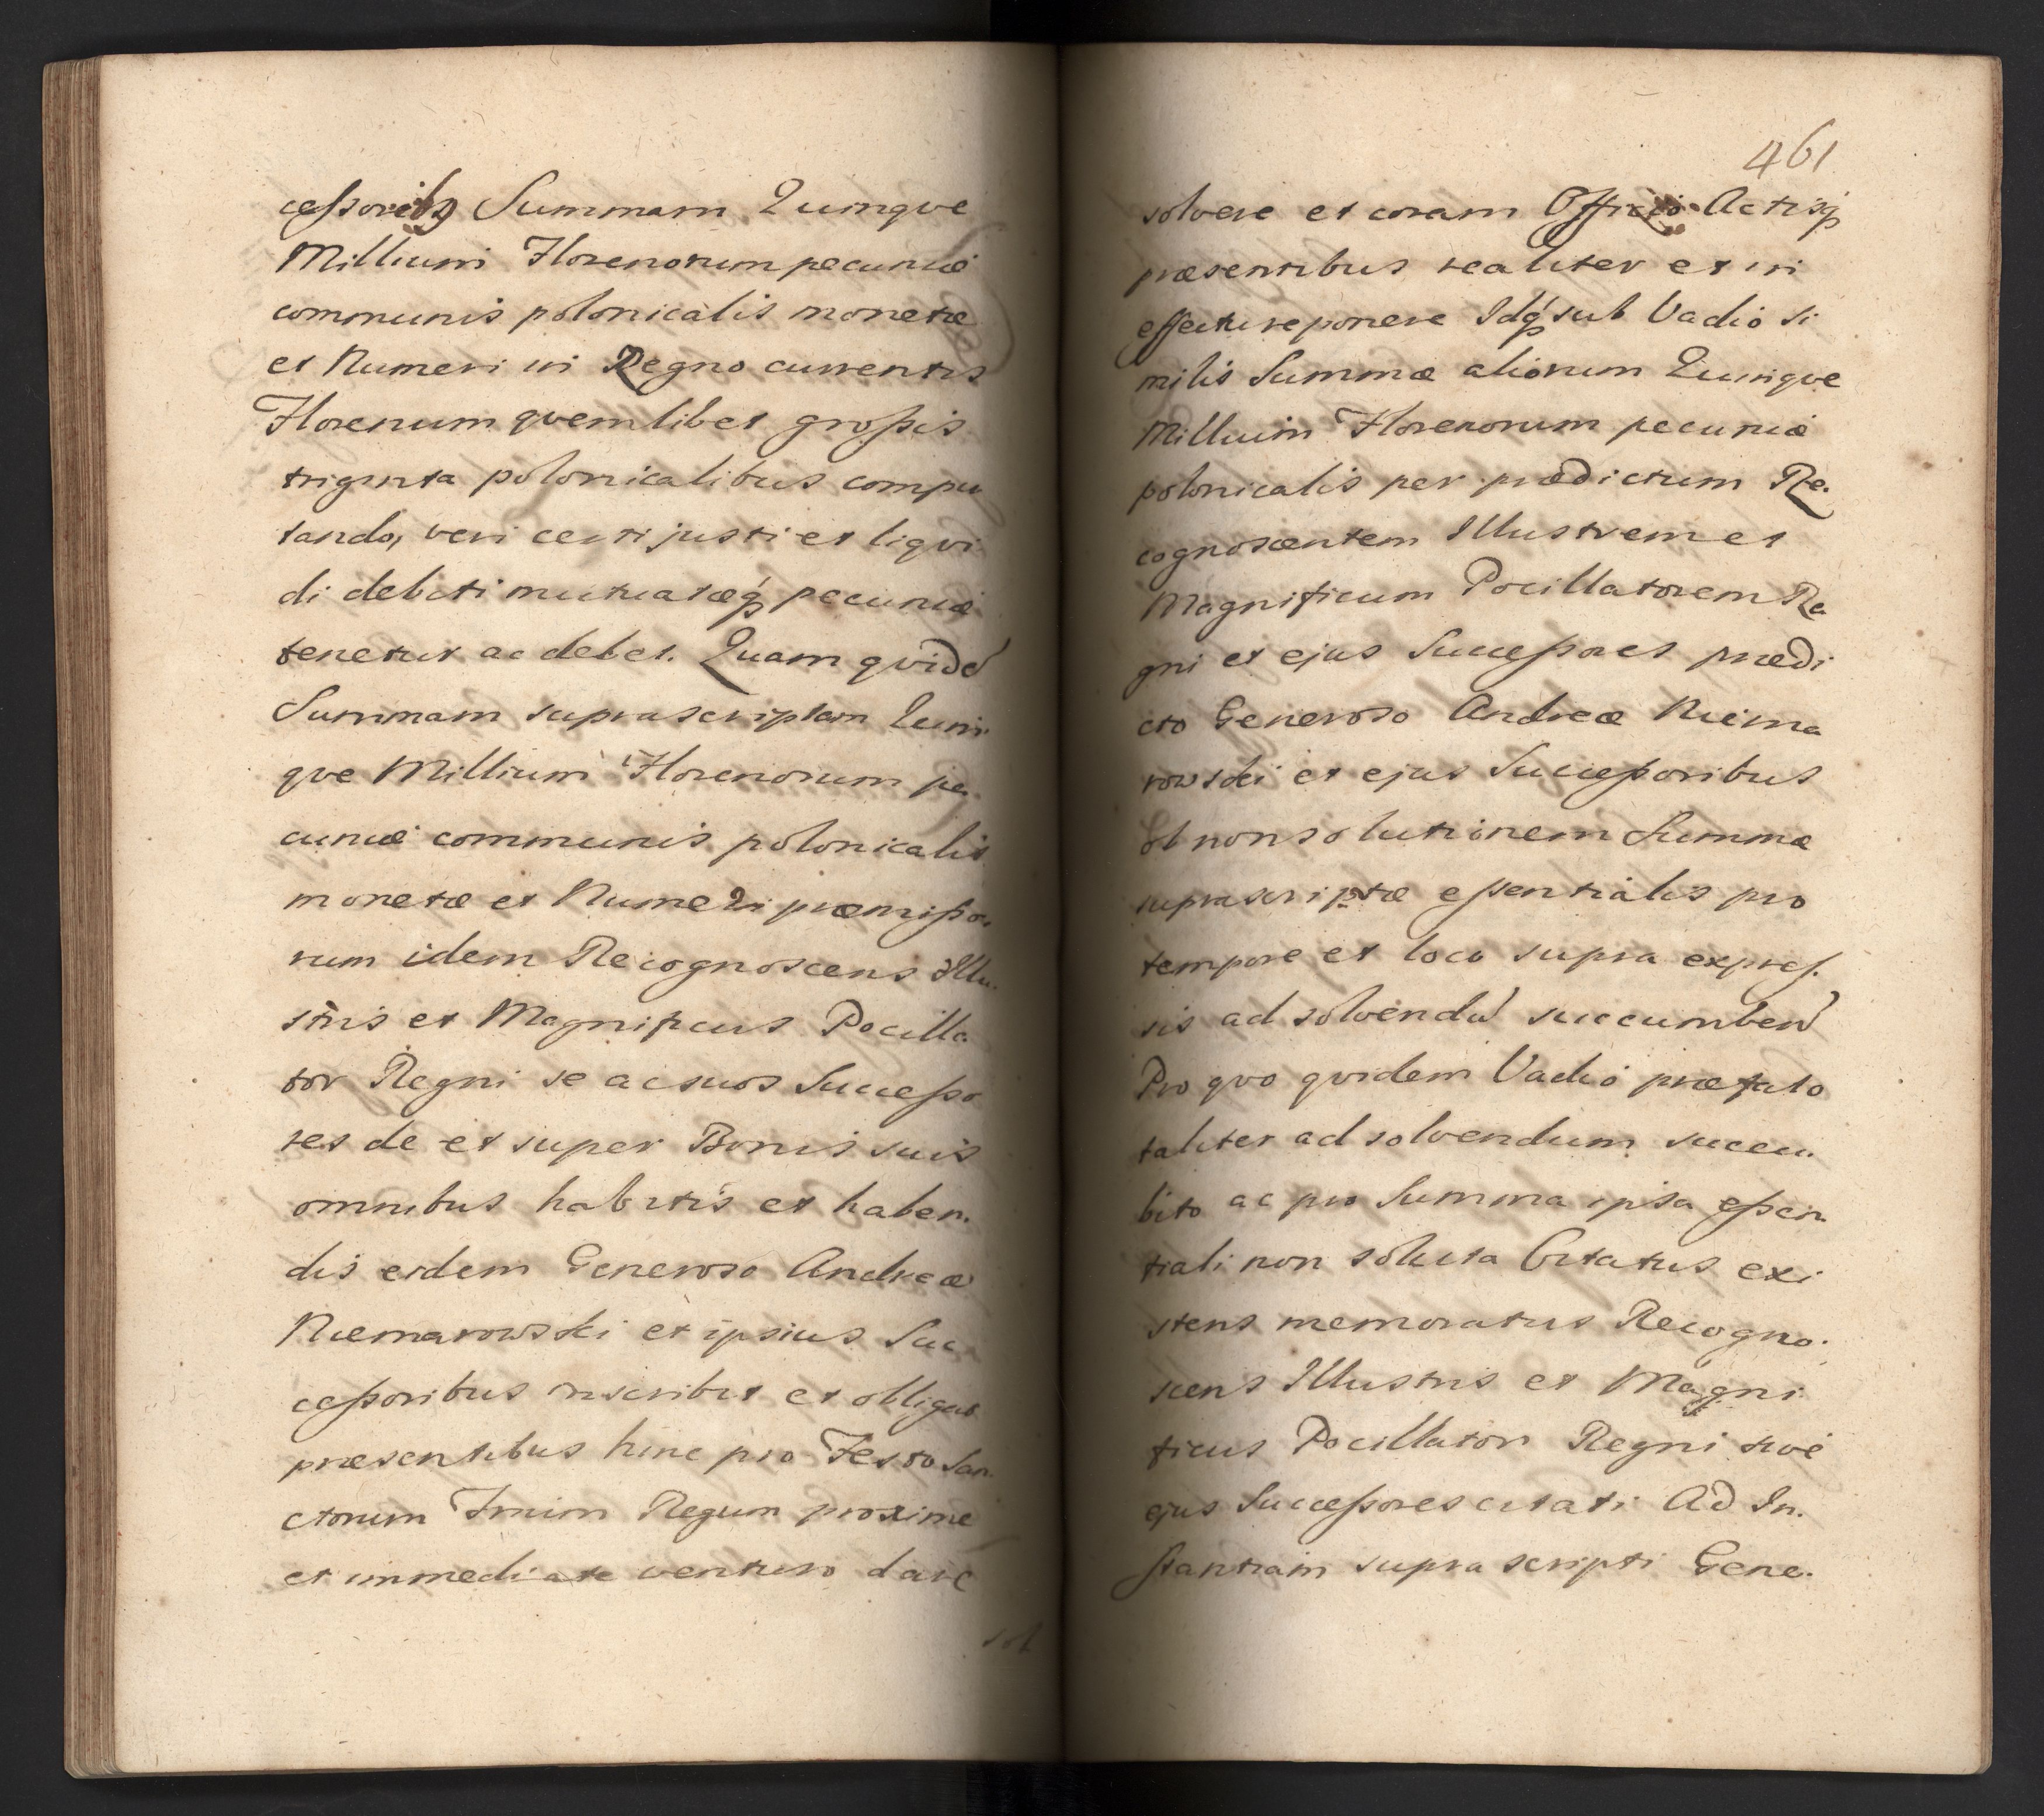 cessoribq Summam Quinqve
Millium Florenorum pecuniæ
communis polonicalis monetæ
et Numeri in Regno currentis
Florenum qvemlibet grossis
triginta polonicalibus compu
tando, veri certi justi et liqvi
di debiti mutuatæq pecuniæ
tenetur ac debet. Quam qvidē
Summam suprascriptam Quin
qve Millium Florenorum pe
cuniæ communis polonicalis
monetæ et Numeri præmisso
rum idem Recognoscens Illu
stris et Magnificus Pocilla
tor Regni se ac suos Successo
res de et super Bonis suis
omnibus habitis et haben
dis eidem Generoso Andreæ
Niemarowski et ipsius Suc
cessoribus inscribit et obligat
præsentibus hinc pro Festo San
ctorum Trium Regum proxime
et immediate venturo dare
sol
461
solvere et coram Officio Actisq
præsentibus realiter et in
effectu reponere Idq sub Vadio si
milis Summæ aliorum Quinqve
Millium Florenorum pecuniæ
polonicalis per prædictum Re.
cognoscentem Illustrem et
Magnificum Pocillatorem Re
gni et ejus Successores prædi
cto Generoso Andreæ Niema
rowski et ejus Successoribus
ob non solutionem Summæ
suprascriptæ essentialis pro
tempore et loco supra expres.
sis ad solvendū succumben̄
Pro qvo qvidem Vadio præfato
taliter ad solvendum succu.
bito ac pro Summa ipsa essen
tiali non soluta Citatus exi
stens memoratus Recogno.
scens Illustris et Magni
ficus Pocillator Regni sive
ejus Successores citati Ad In.
stantiam supra scripti Gene.